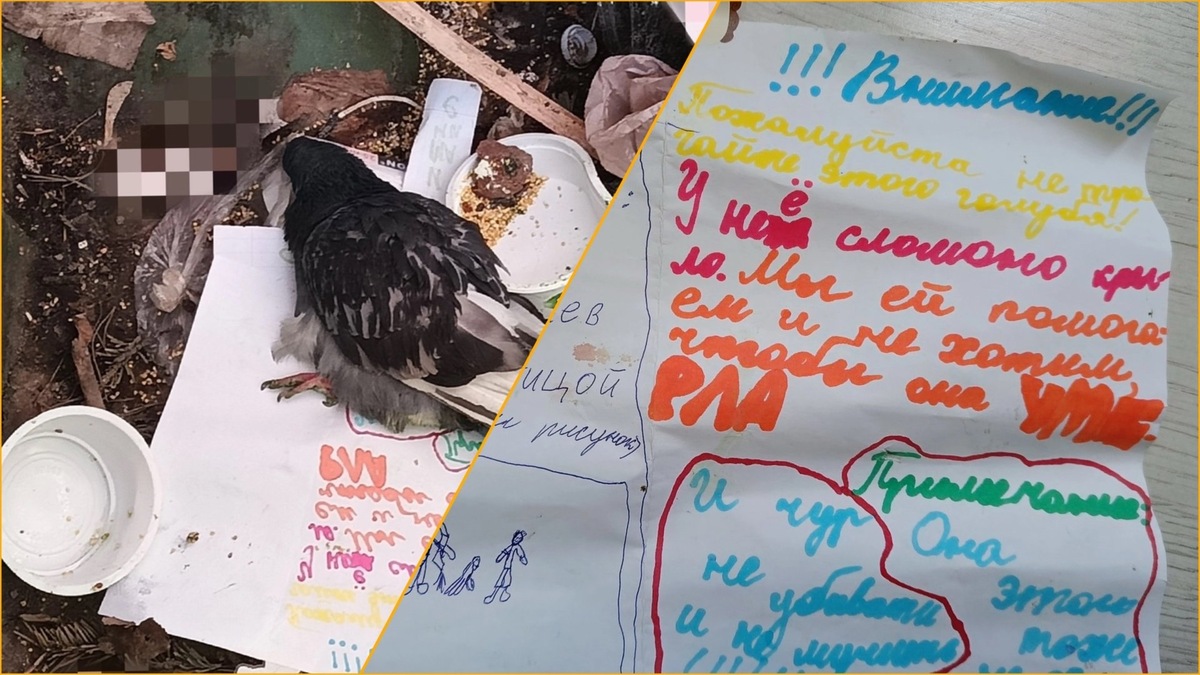 !!! Внимание!!!
Пожалуйста не тро-
гайте этого голубя!
У неё сломоно кры-
ло. Мы ей помога-
ем и не хотим,
чтобы она УМЕ-
РЛА
И чур
не убивать
и не мучить
Примечание:
Она
этого
тоже
ев
ицой
рисунок)
РЛА
чтобы
ем и
ло. Мы
У
ё
!!!